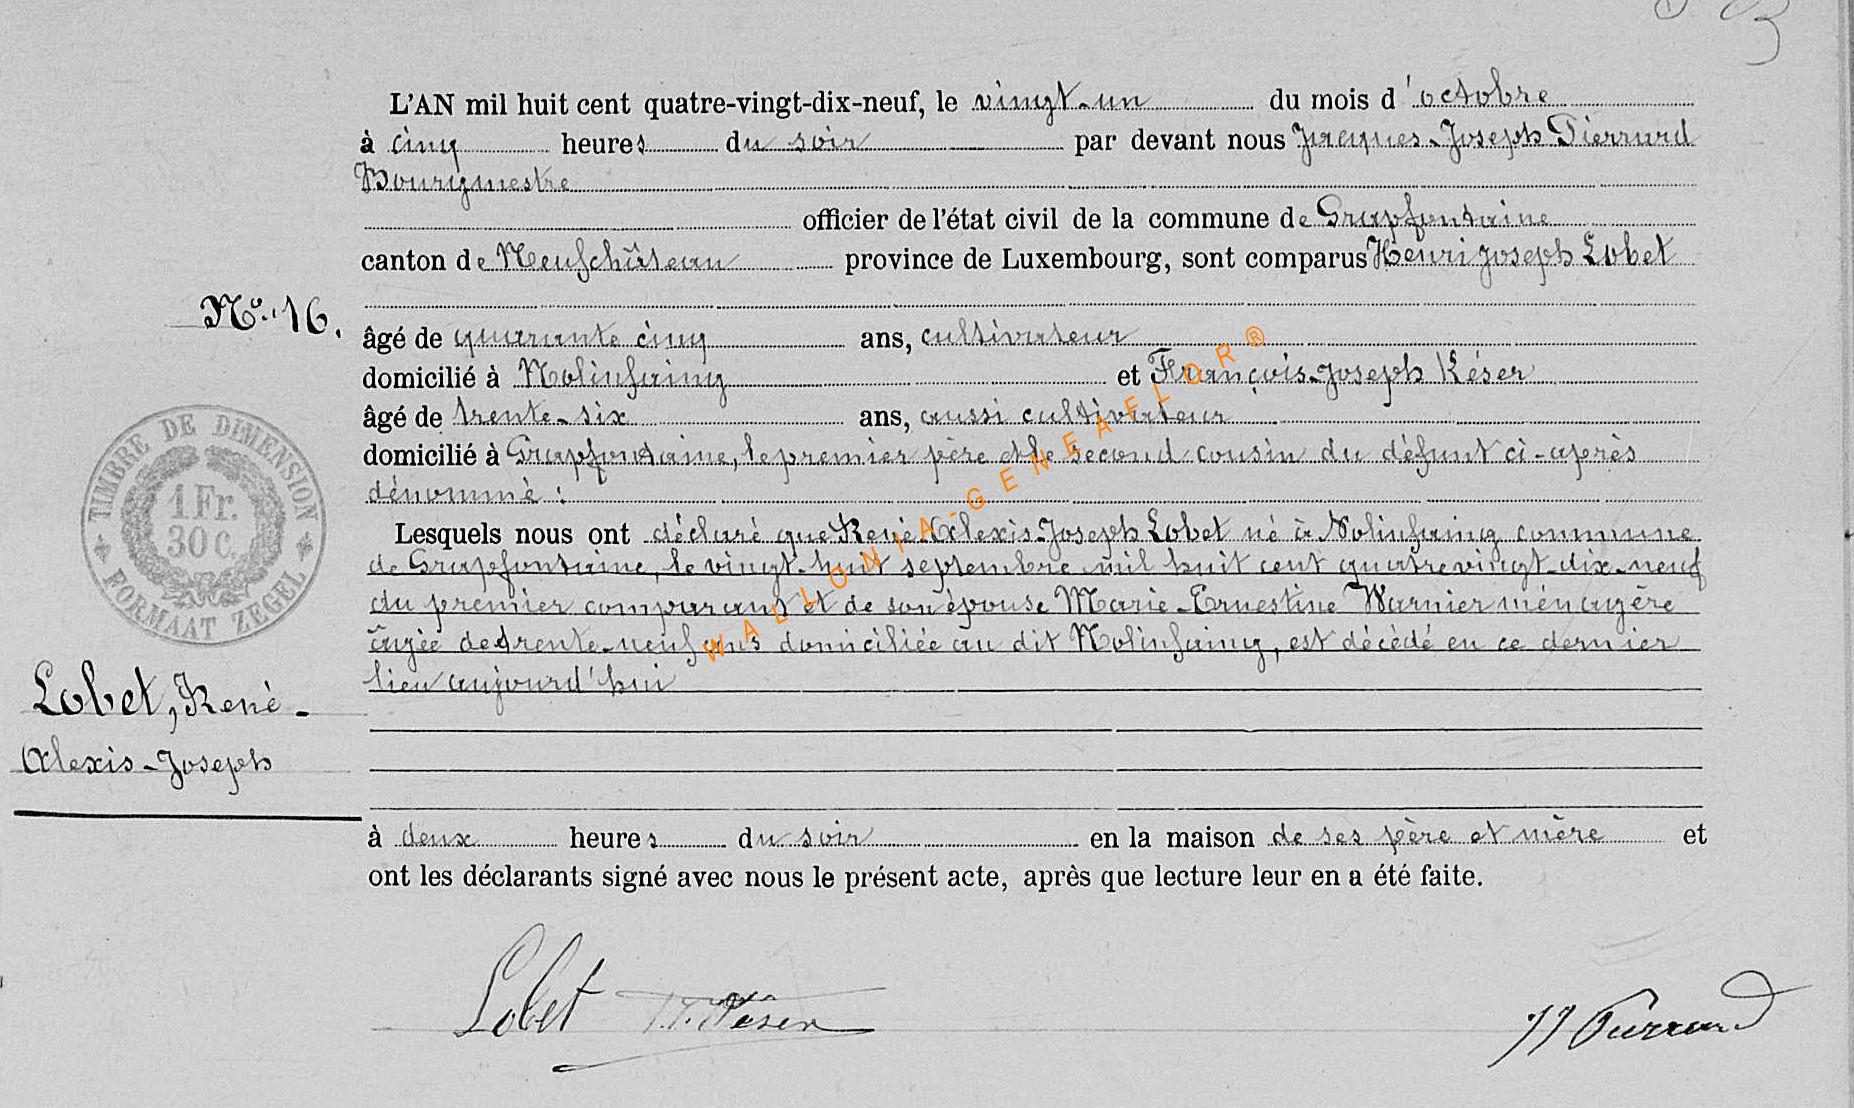 L'AN mil huit cent quatre-vingt-dix-neuf, le vingt-un du mois d'octobre
à cinq heures du soir par devant nous Jacques-Joseph Pierrard
Bourgmestre
officier de l'état civil de la commune de Grapfontaine
canton de Neufchâteau province de Luxembourg, sont comparus Henri Joseph Lobet
N° 16.
âgé de quarante cinq ans, cultivateur
domicilié à Nolinfaing et François-Joseph Késer
âgé de trente-six ans, aussi cultivateur
domicilié à Grapfontaine, le premier père et le second cousin du défunt ci-après
dénommé :
Lesquels nous ont déclaré que René Alexis-Joseph Lobet né à Nolinfaing commune
de Grapfontaine, le vingt-huit septembre mil huit cent quatre vingt-dix-neuf
du premier comparant et de son épouse Marie-Ernestine Warnier ménagère
âgée de trente-neuf ans domiciliée au dit Nolinfaing, est décédé en ce dernier
lieu aujourd'hui
TIMBRE DE DIMENSION
1 Fr.
30 c.
FORMAAT ZEGEL
Lobet, René-
Alexis-Joseph
à deux heures du soir en la maison de ses père et mère et
ont les déclarants signé avec nous le présent acte, après que lecture leur en a été faite.
Lobet J.J. Késer JJ Pierrard
WALLONIA-GENEAFLOR®